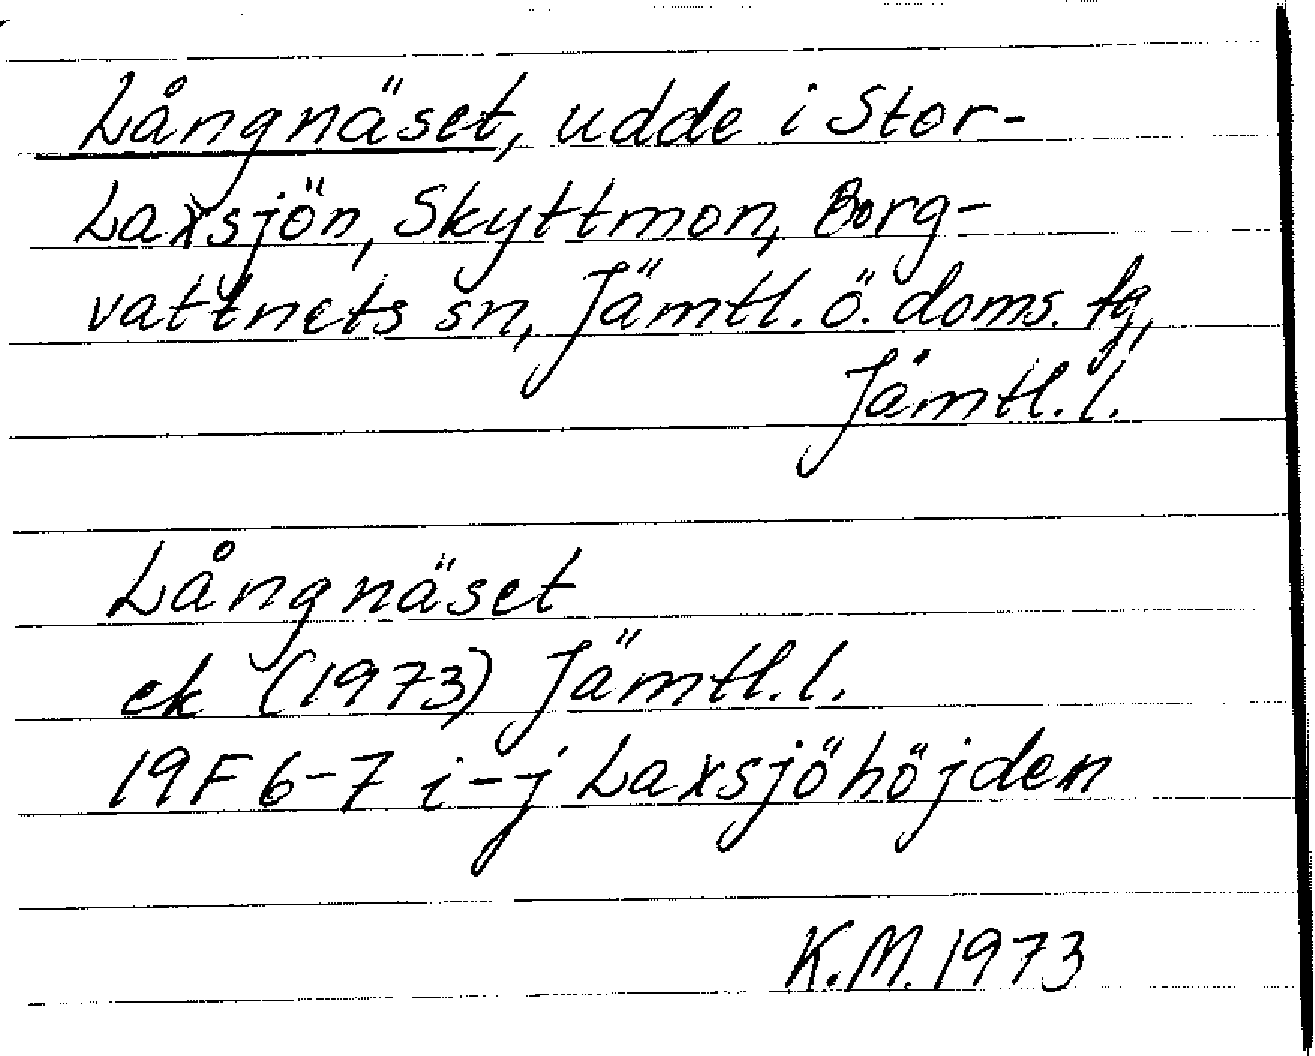 Långnäset, udde i Stor-
Laxsjön, Skyttmon, Borg-
vattnets sn, Jämtl. ö. doms. tg,
Jämtl. l.
Långnäset
ek (1973) Jämtl. l.
19F 6-7 i-j Laxsjöhöjden
K.M. 1973